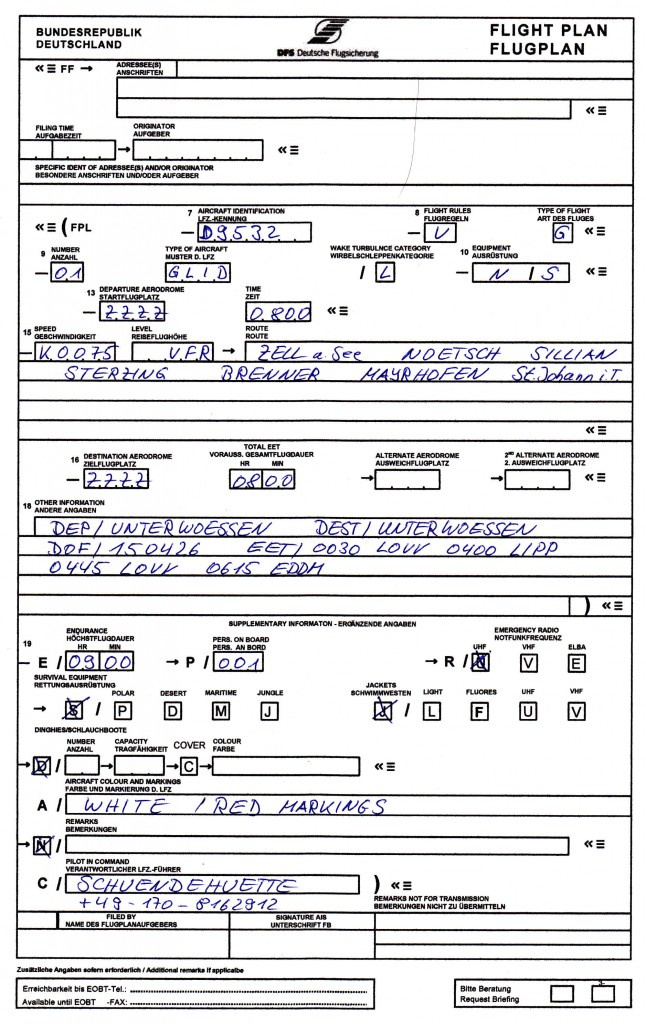 BUNDESREPUBLIK
DEUTSCHLAND
DFS Deutsche Flugsicherung
FLIGHT PLAN
FLUGPLAN
≪≡ FF →
ADRESSEE(S)
ANSCHRIFTEN
≪≡
FILING TIME
AUFGABEZEIT
ORIGINATOR
AUFGEBER
→ ≪≡
SPECIFIC IDENT OF ADRESSEE(S) AND/OR ORIGINATOR
BESONDERE ANSCHRIFTEN UND/ODER AUFGEBER
≪≡ (FPL
7 AIRCRAFT IDENTIFICATION
LFZ.-KENNUNG
— D9532
8 FLIGHT RULES
FLUGREGELN
— V
TYPE OF FLIGHT
ART DES FLUGES
G ≪≡
9 NUMBER
ANZAHL
— 01
TYPE OF AIRCRAFT
MUSTER D. LFZ
GLID
WAKE TURBULNCE CATEGORY
WIRBELSCHLEPPENKATEGORIE
/ L
10 EQUIPMENT
AUSRÜSTUNG
— N / S ≪≡
13 DEPARTURE AERODROME
STARTFLUGPLATZ
— ZZZZ
TIME
ZEIT
0800 ≪≡
15 SPEED
GESCHWINDIGKEIT
— K0075
LEVEL
REISEFLUGHÖHE
VFR →
ROUTE
ROUTE
ZELL a. See NOETSCH SILLIAN
STERZING BRENNER MAYRHOFEN St. Johann i.T.
≪≡
16 DESTINATION AERODROME
ZIELFLUGPLATZ
— ZZZZ
TOTAL EET
VORAUSS. GESAMTFLUGDAUER
HR MIN
0800
ALTERNATE AERODROME
AUSWEICHFLUGPLATZ
→
2ND ALTERNATE AERODROME
2. AUSWEICHFLUGPLATZ
→ ≪≡
18 OTHER INFORMATION
ANDERE ANGABEN
DEP/ UNTERWOESSEN DEST/ UNTERWOESSEN
DOF/ 150426 EET/ 0030 LOVV 0400 LIPP
0445 LOVV 0615 EDDM
) ≪≡
SUPPLEMENTARY INFORMATON - ERGÄNZENDE ANGABEN
19 ENDURANCE
HÖCHSTFLUGDAUER
HR MIN
— E / 0900
PERS. ON BOARD
PERS. AN BORD
→ P / 001
EMERGENCY RADIO
NOTFUNKFREQUENZ
UHF VHF ELBA
→ R / U V E
SURVIVAL EQUIPMENT
RETTUNGSAUSRÜSTUNG
POLAR DESERT MARITIME JUNGLE
→ S / P D M J
JACKETS
SCHWIMMWESTEN
LIGHT FLUORES UHF VHF
J / L F U V
DINGHIES/SCHLAUCHBOOTE
NUMBER
ANZAHL
CAPACITY
TRAGFÄHIGKEIT
COVER
COLOUR
FARBE
→ D / → → C → ≪≡
AIRCRAFT COLOUR AND MARKINGS
FARBE UND MARKIERUNG D. LFZ
A / WHITE / RED MARKINGS
REMARKS
BEMERKUNGEN
→ N / ≪≡
PILOT IN COMMAND
VERANTWORTLICHER LFZ.-FÜHRER
C / SCHUENDEHUETTE ) ≪≡
+49-170-8162912
REMARKS NOT FOR TRANSMISSION
BEMERKUNGEN NICHT ZU ÜBERMITTELN
FILED BY
NAME DES FLUGPLANAUFGEBERS
SIGNATURE AIS
UNTERSCHRIFT FB
Zusätzliche Angaben sofern erforderlich / Additional remarks if applicalbe
Erreichbarkeit bis EOBT-Tel.:
Available until EOBT -FAX:
Bitte Beratung
Request Briefing